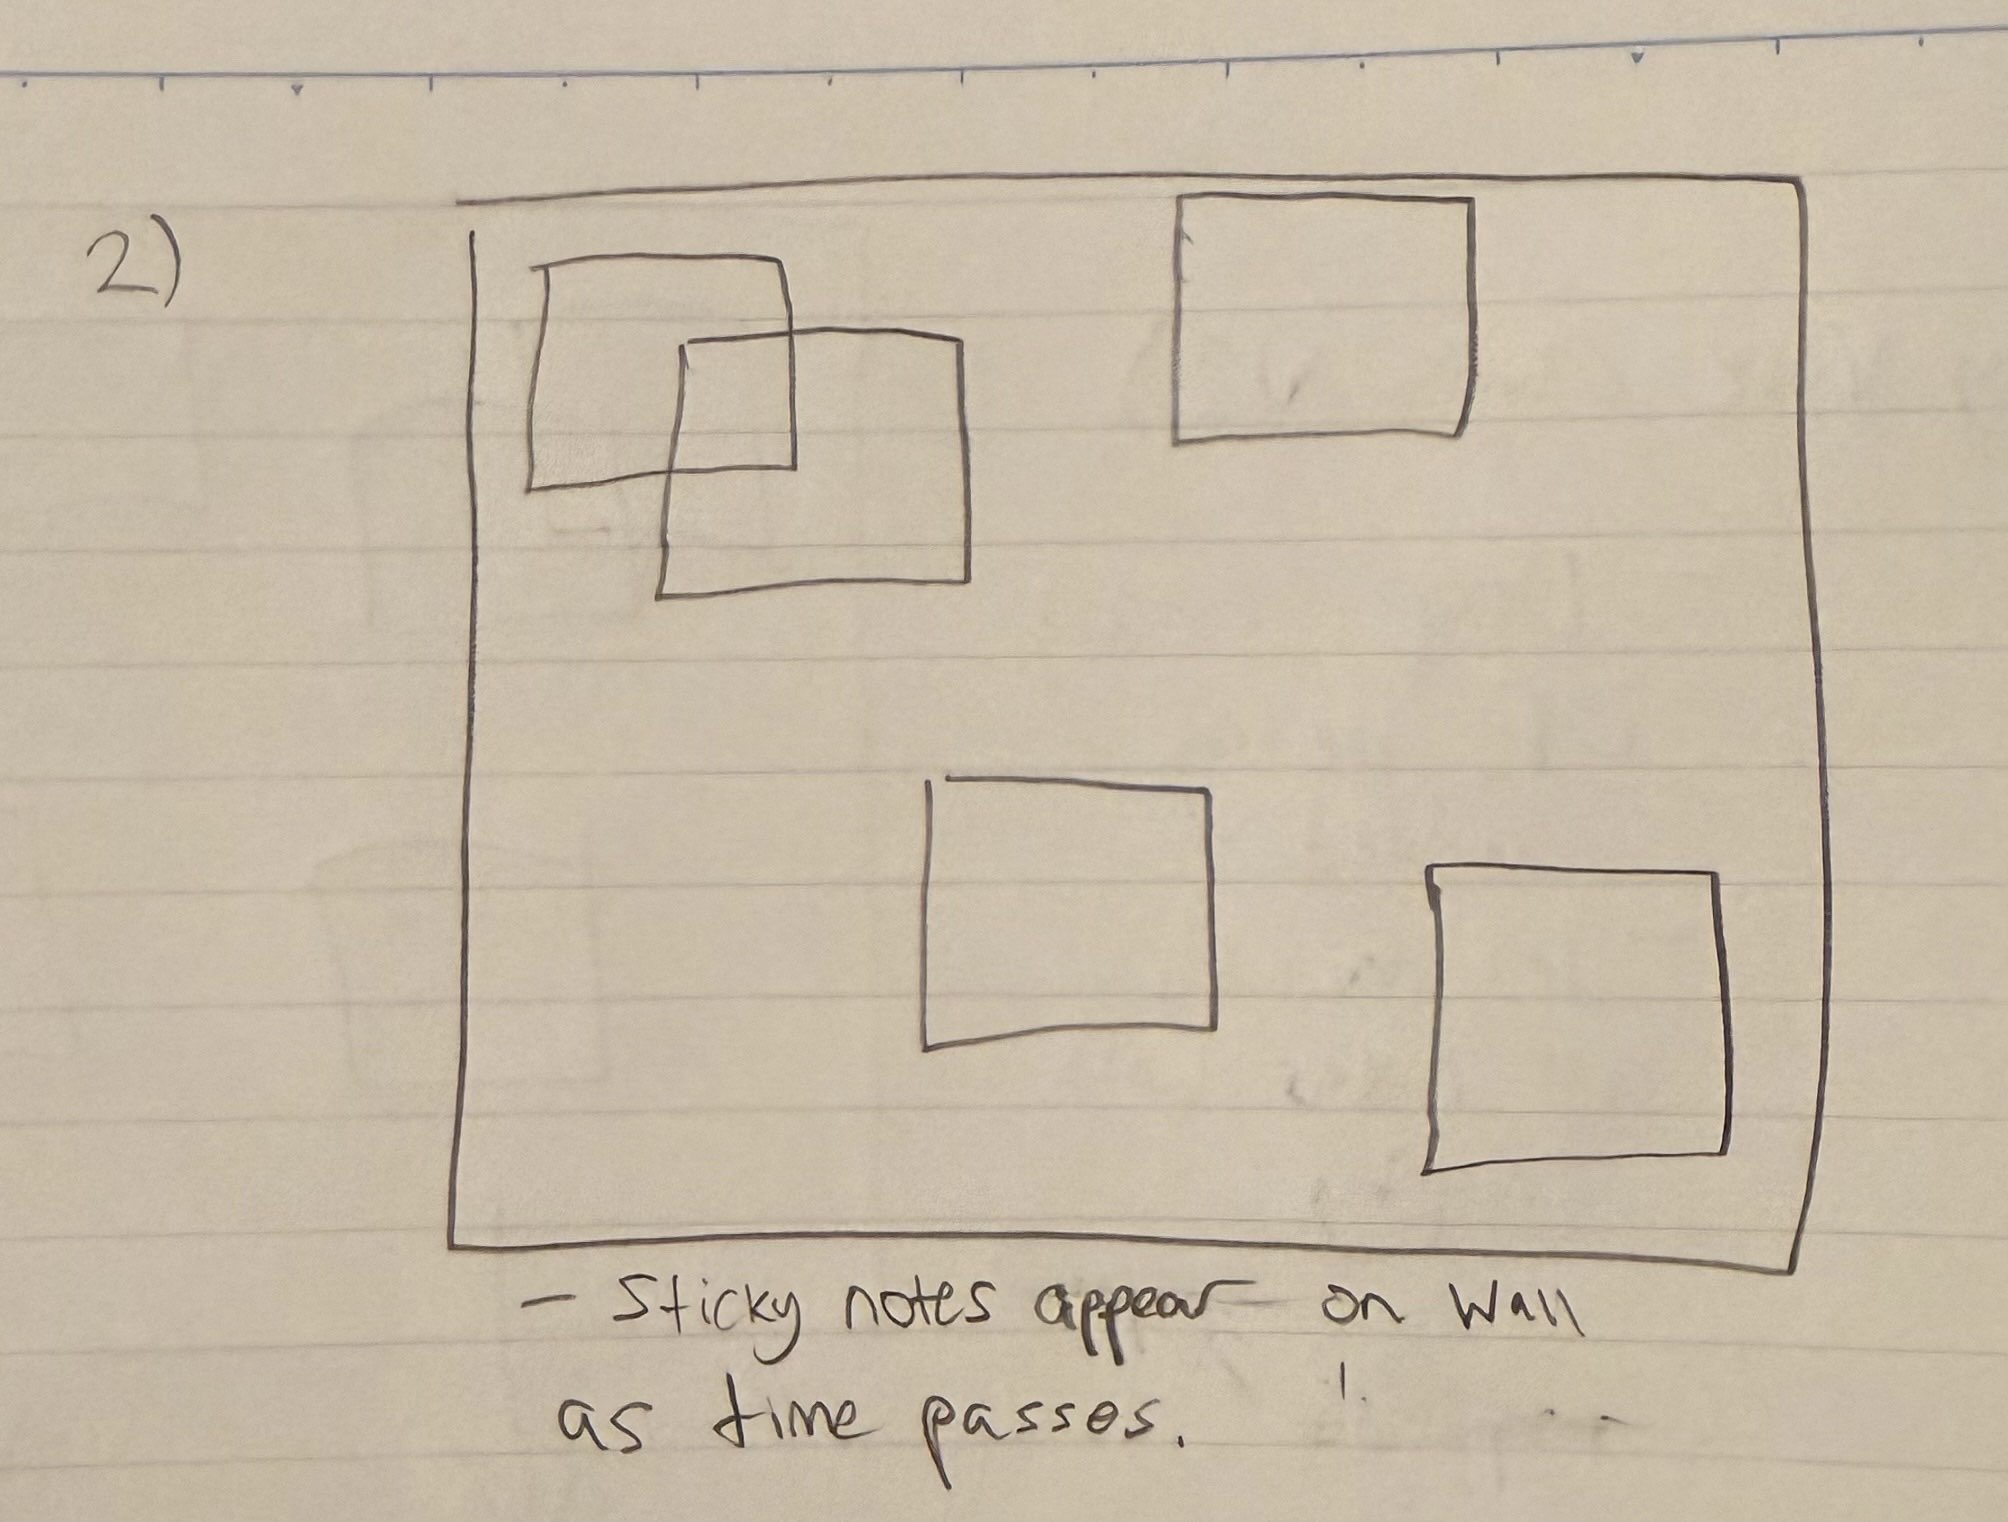 2)
- Sticky notes appear on Wall
as time passes.